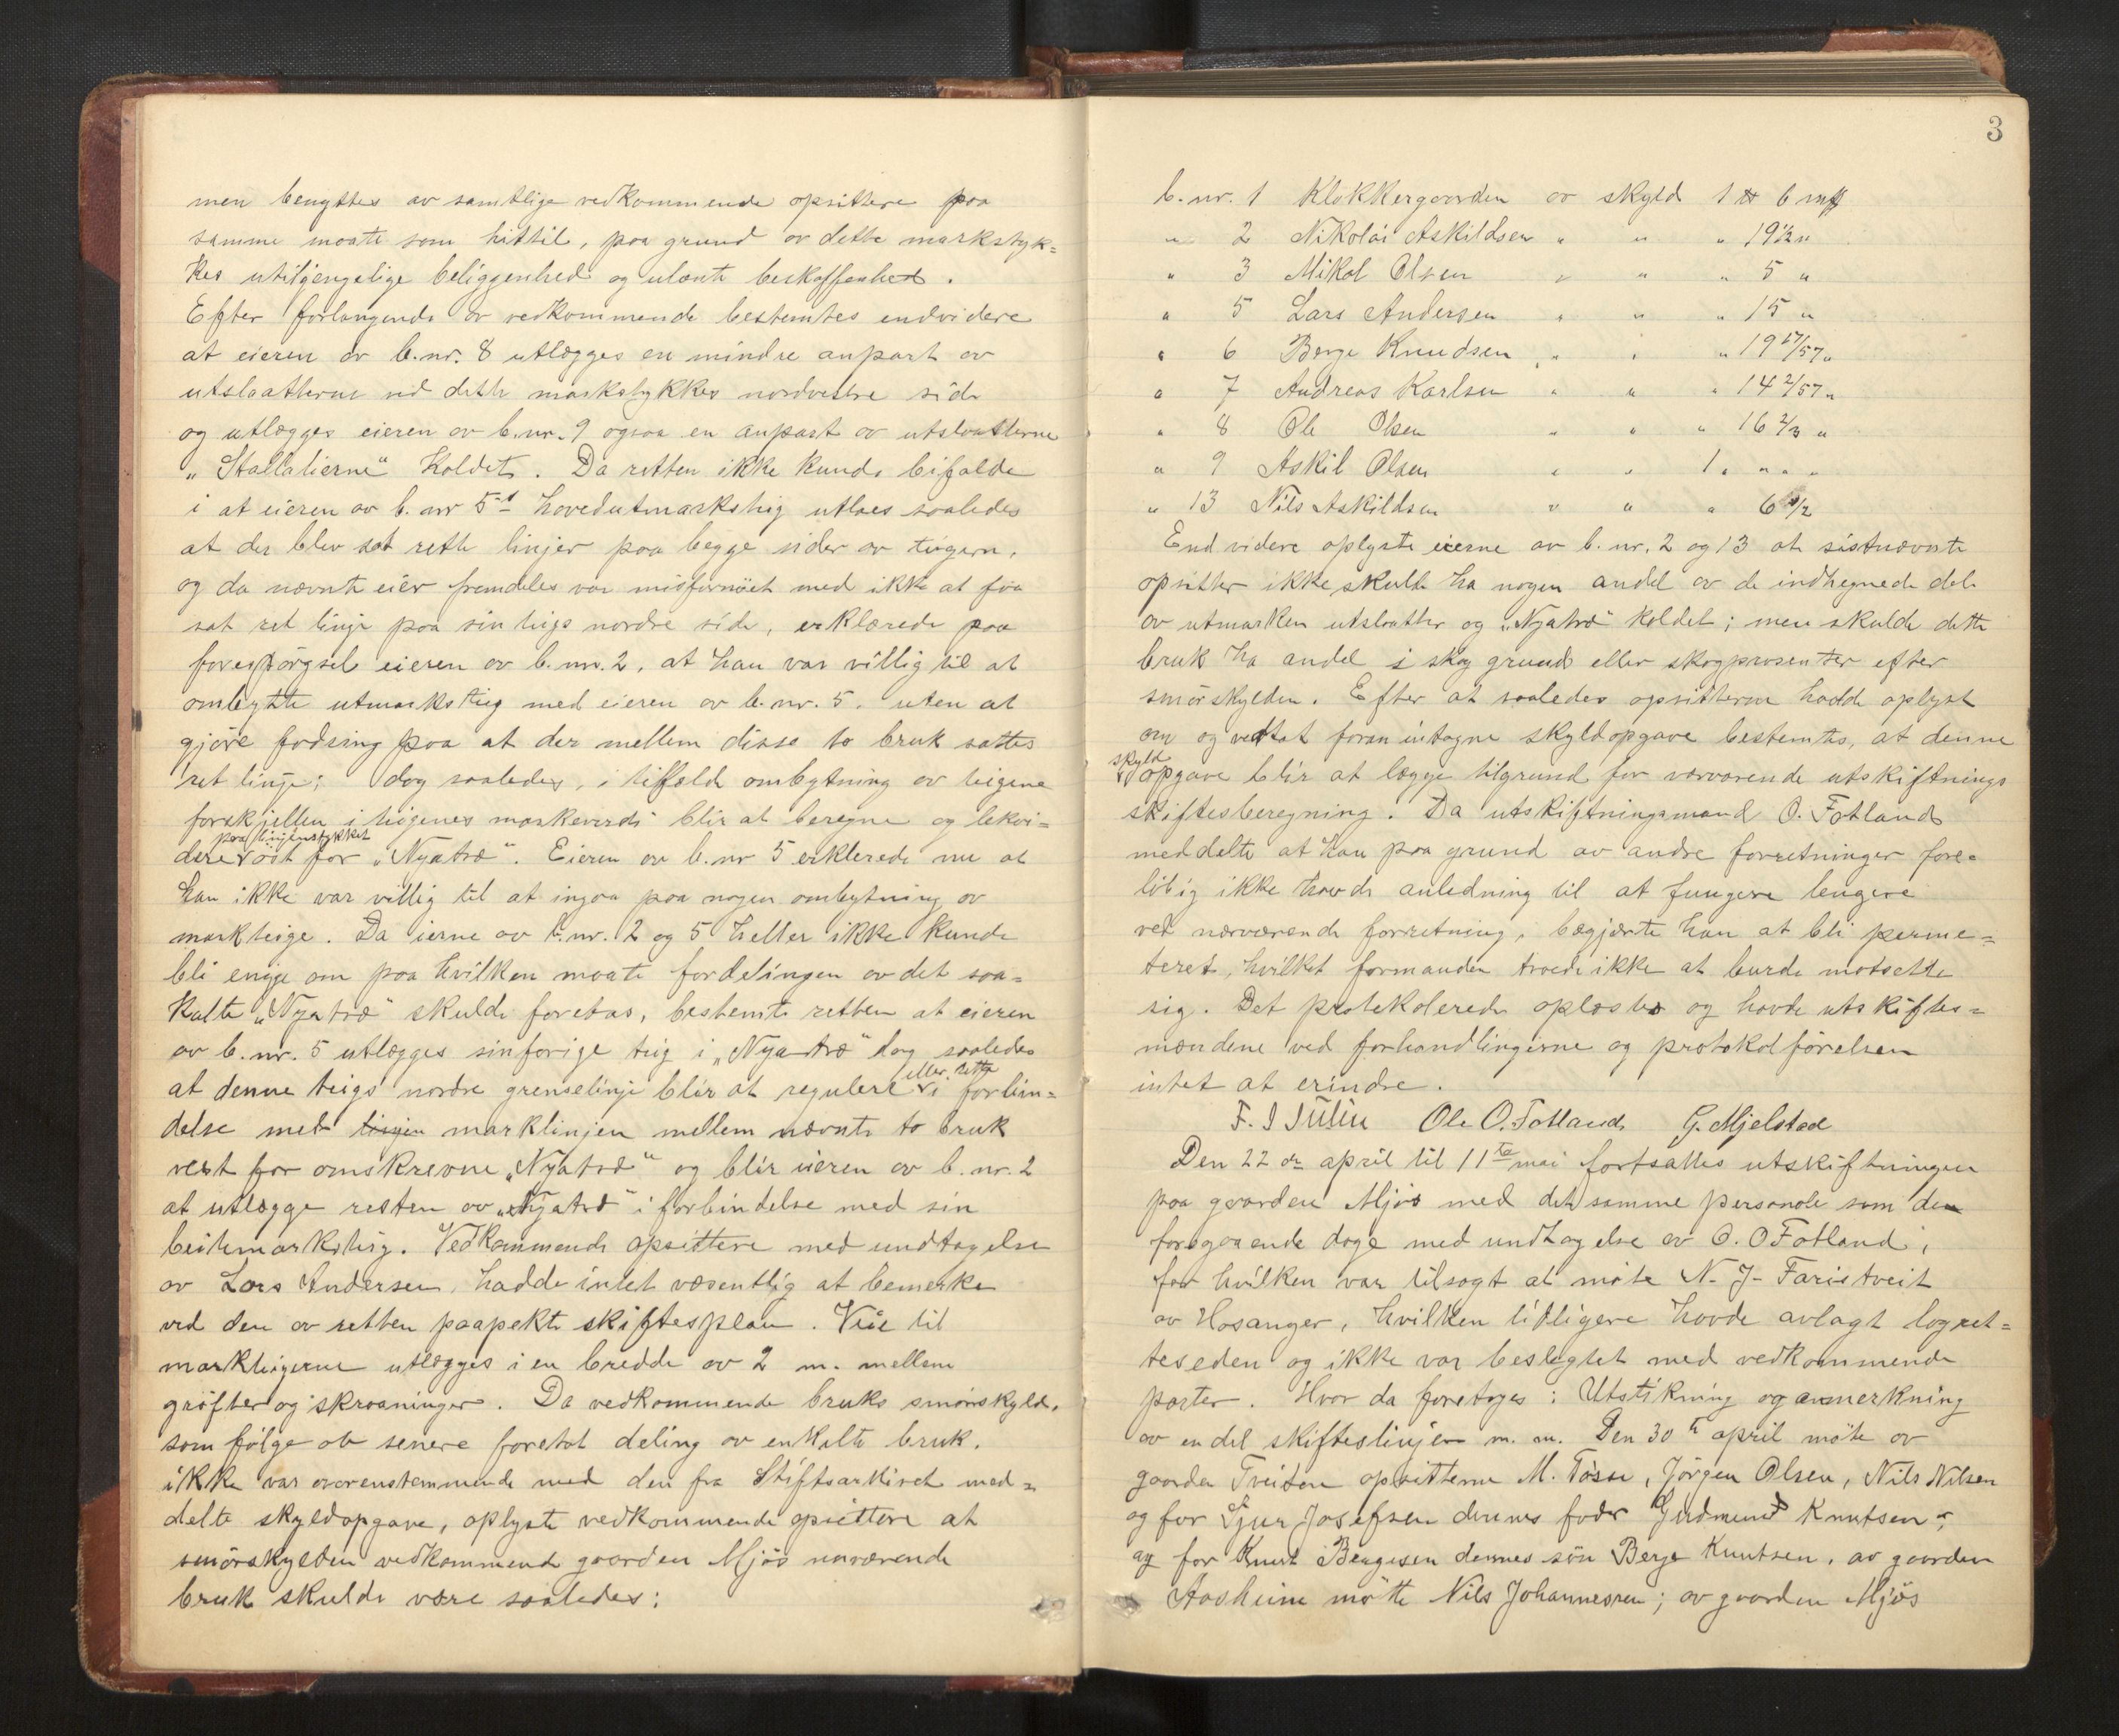 men benyttes av samtlige vedkommende opsittere paa
samme maate som hittil, paa grund av dette markstyk=
kes utilgjengelige beliggenhed og ulænte beskaffenhed.
Efter forlangende av vedkommende bestemtes endvidere
at eieren av b.nr. 8 utlægges en mindre anpart av
utslaatterne ved dette markstykkes nordvestre side
og utlægges eieren av b.nr. 9 ogsaa en anpart av utslaatterne
„Stallalierne" kaldet. Da retten ikke kunde bifalde
i at eieren av b. nr 5's hovedutmarksteig utlaes saaledes
at der blev sat rette linjer paa begge sider av teigen,
og da nævnte eier fremdeles var misfornöiet med ikke at faa
sat ret linje paa sin teigs nordre side, erklærede paa
forespörgsel eieren av b.nr. 2, at han var villig til at
ombytte utmarksteig med eieren av b.nr. 5. uten at
gjöre fodring paa at der mellem disse to bruk sattes
ret linje; dog saaledes, i tilfæld ombytning av teigene
forskjellen i teigenes markeverdi blir at beregne og lekvi=
paa linjestykket
dere öst for „Nyatræ". Eieren av b.nr 5 erklerede nu at
han ikke var villig til at ingaa paa nogen ombytning av
markteige. Da eierne av b.nr. 2 og 5 heller ikke kunde
bli enige om paa hvilken maate fordelingen av det saa=
kalte „Nyatræ" skulde foretas, bestemte retten at eieren
av b.nr. 5 utlægges sin forige teig i „Nyatræ" dog saaledes
eller rette
at denne teigs nordre grenselinje blir at regulere i forbin=
delse med linjen marklinjen mellem nævnte to bruk
vest for omskrevne „Nyatræ" og blir eieren av b.nr. 2
at utlægge resten av „Nyatræ" i forbindelse med sin
beitemarksteig. Vedkommende opsittere med undtagelse
av Lars Andersen, hadde intet væsentlig at bemerke
ved den av retten paapekte skiftesplan. Veie til
markteigerne utlægges i en bredde av 2 m. mellem
gröfter og skraaninger. Da vedkommende bruks smörskyld,
som fölge av senere foretat deling av enkelte bruk,
ikke var overenstemmende med den fra Stiftsarkivet med=
delte skyldopgave, oplyste vedkommende opsittere at
smörskylden vedkommende gaarden Mjös nuværende
bruk skulde være saaledes:
3
b.nr. 1 Klokkergaarden av skyld 1 ℔ 6 mrk
" 2 Nikolai Askildsen " " " 19½ "
" 3 Mikal Olsen " " " 5 "
" 5 Lars Andersen " " " 15 "
" 6 Berge Knudsen " " " 19 17/57 "
" 7 Andreas Karlsen " " " 14 2/57 "
" 8 Ole Olsen " " " 16 2/3 "
" 9 Askil Olsen " " 1 " " " "
" 13 Nils Askildsen " " " 6 1/2
Endvidere oplyste eierne av b.nr. 2 og 13 at sistnævnte
opsitter ikke skulde ha nogen andel av de indhegnede dele
av utmarken utslaatter og „Nyatræ" kaldet; men skulde dette
bruk ha andel i skog grund eller skogprosenter efter
smörskylden. Efter at saaledes opsitterne hadde oplyst
om og vedtat foran intagne skyldopgave bestemtes, at denne
skyld
opgave blir at lægge tilgrund for nærværende utskiftnings
skiftesberegning. Da utskiftningsmand O. Fotland
meddelte at han paa grund av andre forretninger fore=
löbig ikke havde anledning til at fungere lengere
ved nærværende forretning, begjærte han at bli perme=
teret, hvilket formanden troede ikke at burde motsette
sig. Det protokolerede oplæstes og havde utskiftes=
mændene ved forhandlingerne og protokolförelsen
intet at erindre.
Ole O. Fotland G. Mjelstad
Den 22de april til 11te mai fortsattes utskiftningen
paa gaarden Mjös med det samme personale som den
foregaaende dage med undtagelse av O. O Fotland,
for hvilken var tilsagt at möte N. J. Faristveit
av Hosanger, hvilken tidligere havde avlagt lagret=
teseden og ikke var beslegtet med vedkommende
parter. Hvor da foretoges: Utstikning og avmerkning
av en del skifteslinjer m. m. Den 30te april möte av
gaarden Tveiten opsitterne M. Tösse, Jörgen Olsen, Nils Nilsen
og for Sjur Josefsen dennes fader Gudmund Knutsen,
og for Knut Bergesen dennes sön Berge Knutsen, av gaarden
Aasheim mötte Nils Johannesen; av gaarden Mjös